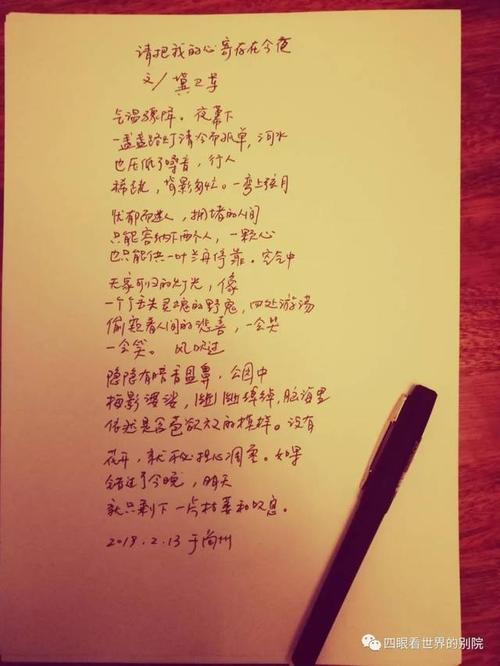 请把我的心寄存在今夜
文/冀卫军
气温骤降。夜幕下
一盏盏路灯清冷而孤单，河水
也压低了嗓音，行人
稀疏，背影匆忙。一弯上弦月
忧郁而迷人，拥堵的人间
只能容纳下两个人，一颗心
也只能供一叶兰舟停靠。空气中
无家可归的灯光，像
一个个丢失灵魂的野鬼，四处游荡
偷窥着人间的悲喜，一会哭
一会笑。风吹过
隐隐有暗香盈鼻，公园中
梅影婆娑，脑海里
依然是含苞欲放的模样。没有
花开，就不必担心凋零。如果
错过了今晚，明天
就只剩下一片枯萎和叹息。
2019.2.13 于兰州
四眼看世界的别院